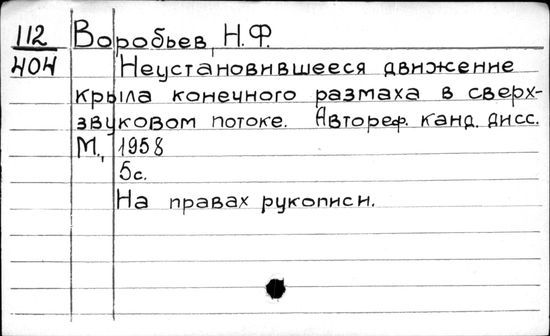 112 Воробьев, Н.Ф.
404 Неустановившееся движение
крыла конечного размаха в сверх-
звуковом потоке. Автореф. канд. дисс.
М., 1958
5с.
На правах рукописи.